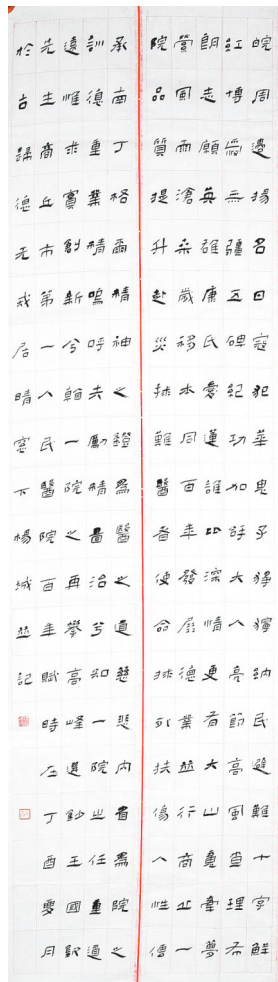 皖周邊揚名日寇犯華鬼子獐獰納民避難十字鮮
紅博愛無疆五碑紀功加訝大人亮節高風查理
朗志願英雄康氏愛蓮誰深情更有大山夢
營風雨滄桑歲移本同百年發展德業並行商丘一
院品質提升赴災難醫者使命救死扶傷人性傳
承南丁格爾精神之鐙為醫之道慈悲內省為院之
訓德重業精嗚呼夫勵精圖治兮知一院之任重道
遠惟求實創新兮翰一院之再舉高峰選鈔王國欽
先生商丘市第一人民醫院百年賦時在丁酉夏月
於古歸德無戒居晴窗下楊誠並記